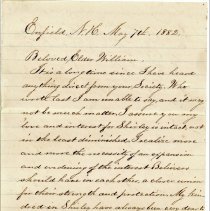 Enfield, N.H. May 7th, 1882.
Beloved Elder William
It is a long time since I have heard
anything direct from your Society. Who
wrote last I am unable to say, and it may
not be much matter. I assure you my
love and interest for Shirley is intact, not
in the least diminished. I realize more
and more the necessity of an expansion
and extending of the interest Believers
should have in each other & cherish
for their strength and protection. My
deed in Shirley have always been very dear to